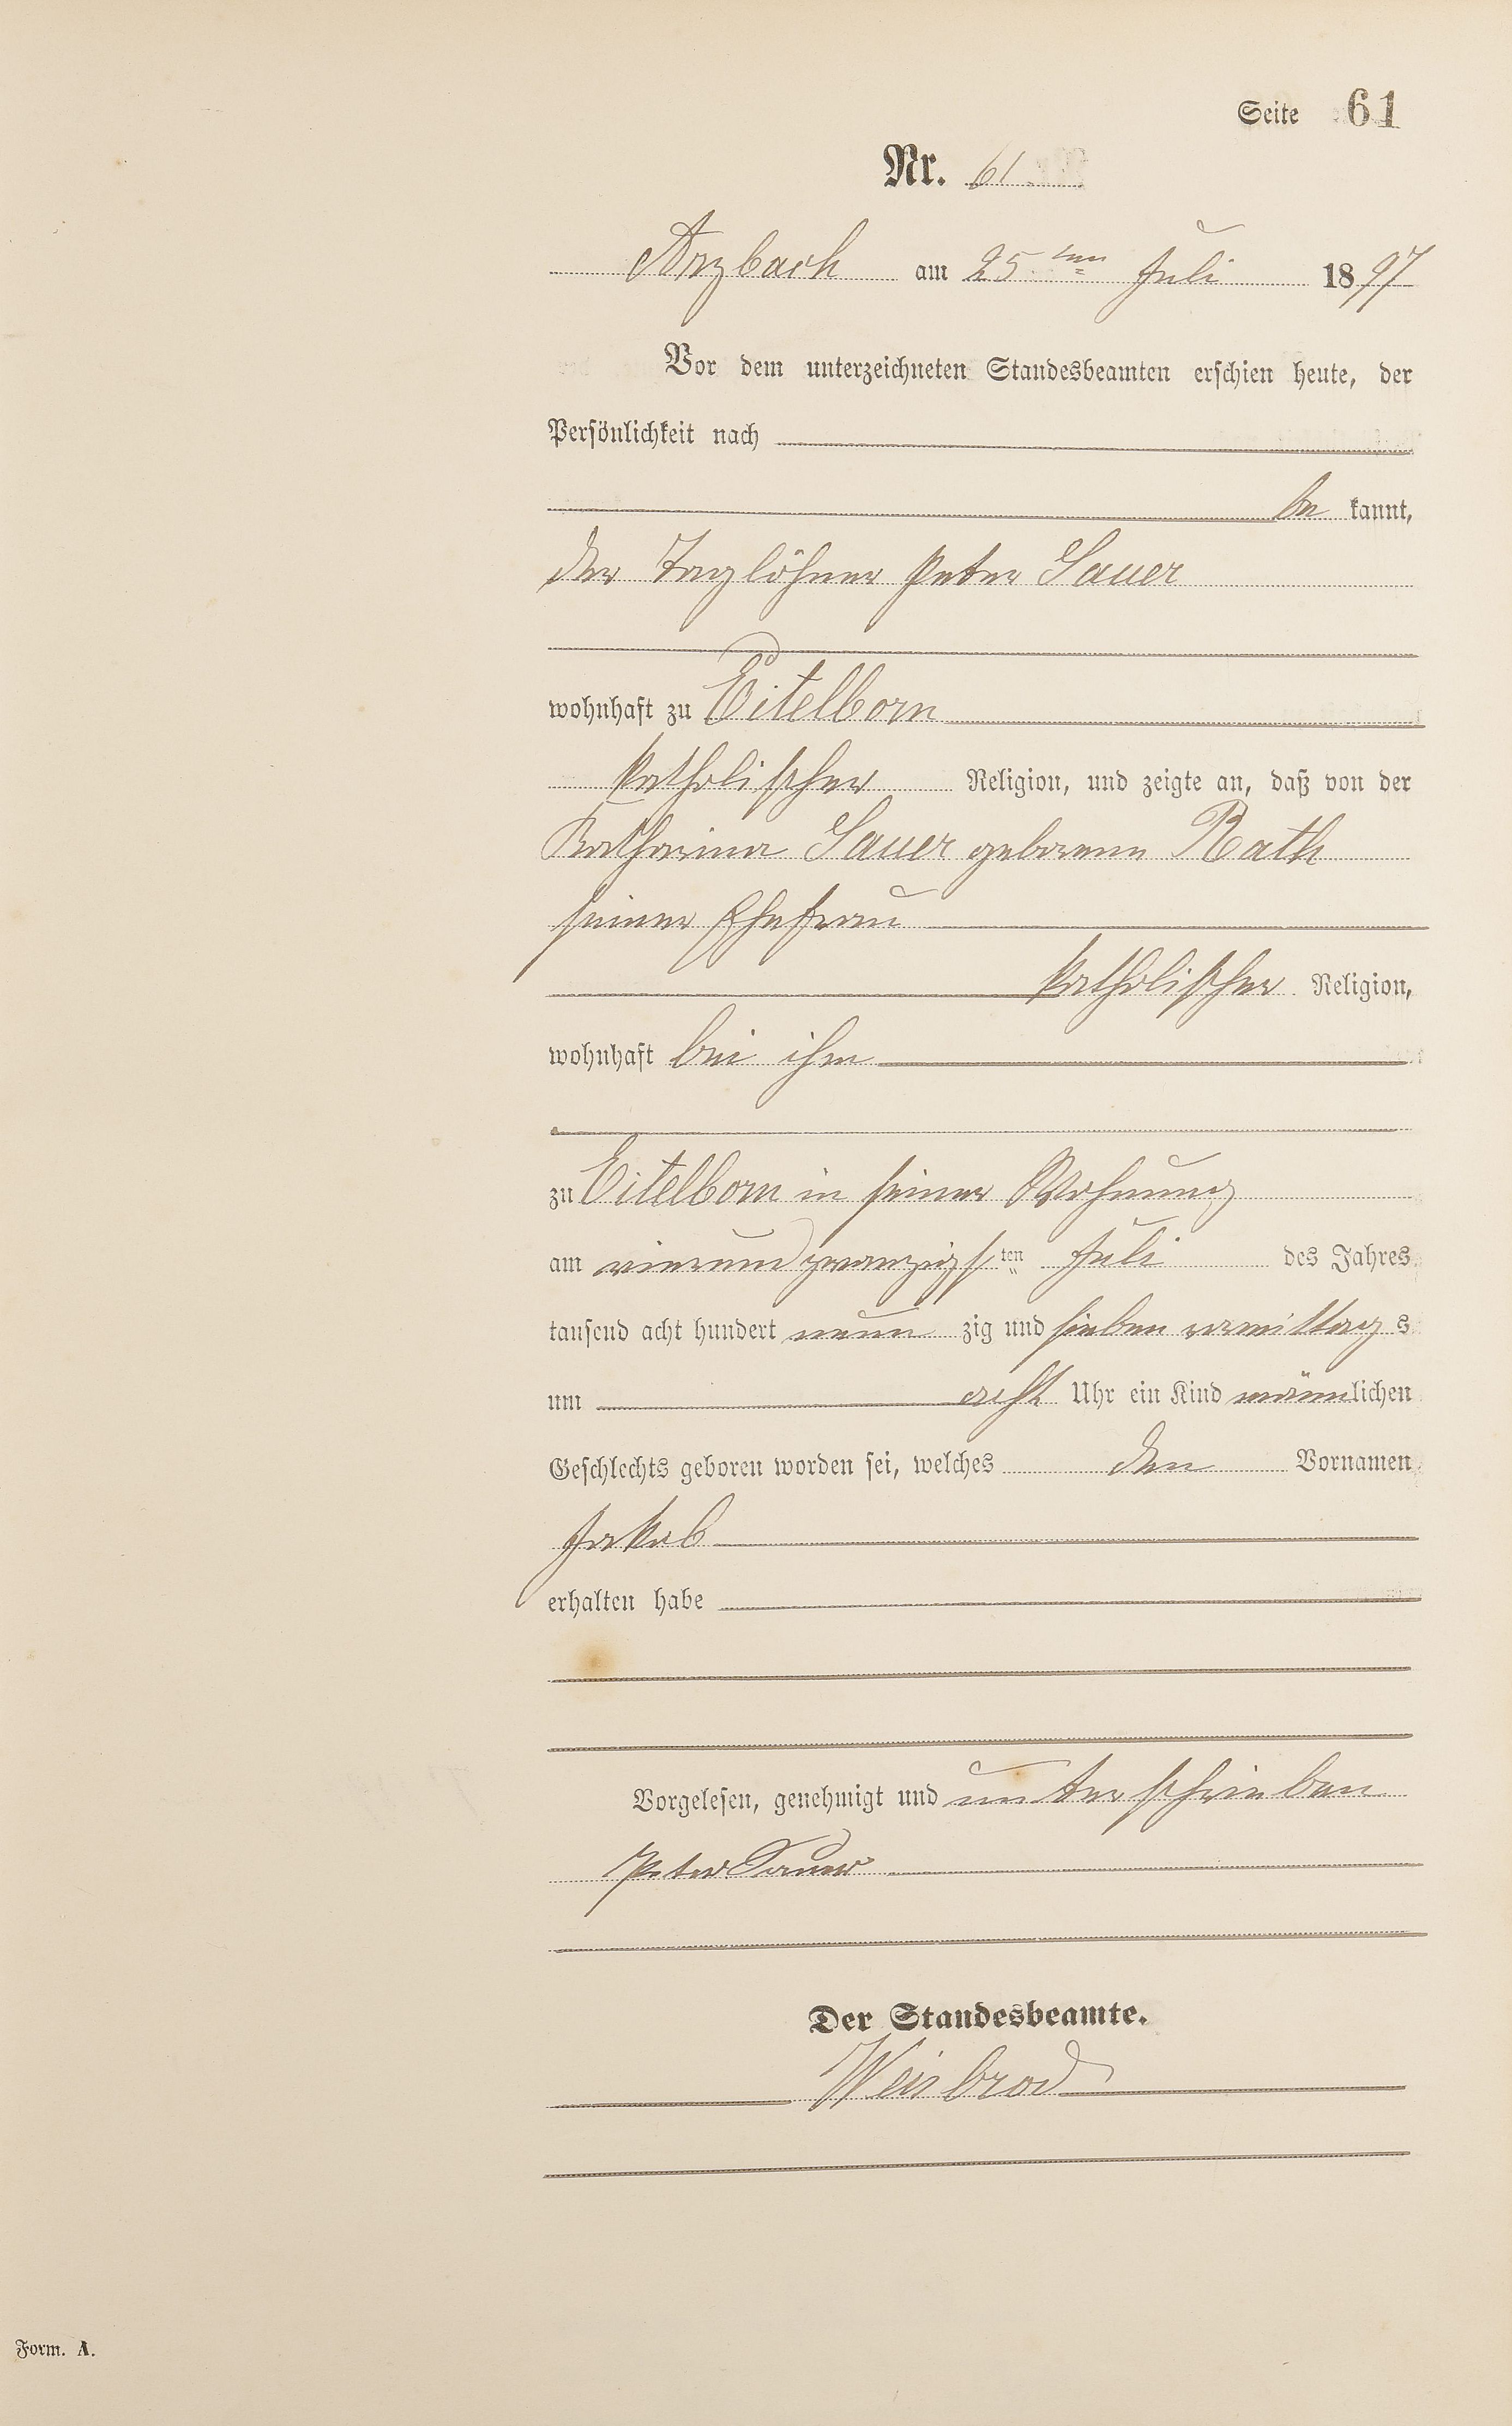 Seite 61
Nr. 61
Arzbach am 25ten Juli 1897
Vor dem unterzeichneten Standesbeamten erschien heute, der
Persönlichkeit nach
be kannt,
der Taglöhner Peter Sauer
wohnhaft zu Eitelborn
katholischer Religion, und zeigte an, daß von der
Katharina Sauer geborene Rath
seiner Ehefrau
katholischer Religion,
wohnhaft bei ihm
zu Eitelborn in seiner Wohnung
am vierundzwanzigsten Juli des Jahres
tausend acht hundert neun zig und sieben vormittags
um acht Uhr ein Kind männlichen
Geschlechts geboren worden sei, welches den Vornamen
Jakob
erhalten habe
Vorgelesen, genehmigt und unterschrieben
Peter Sauer
Der Standesbeamte.
Weisbrod
Form. A.